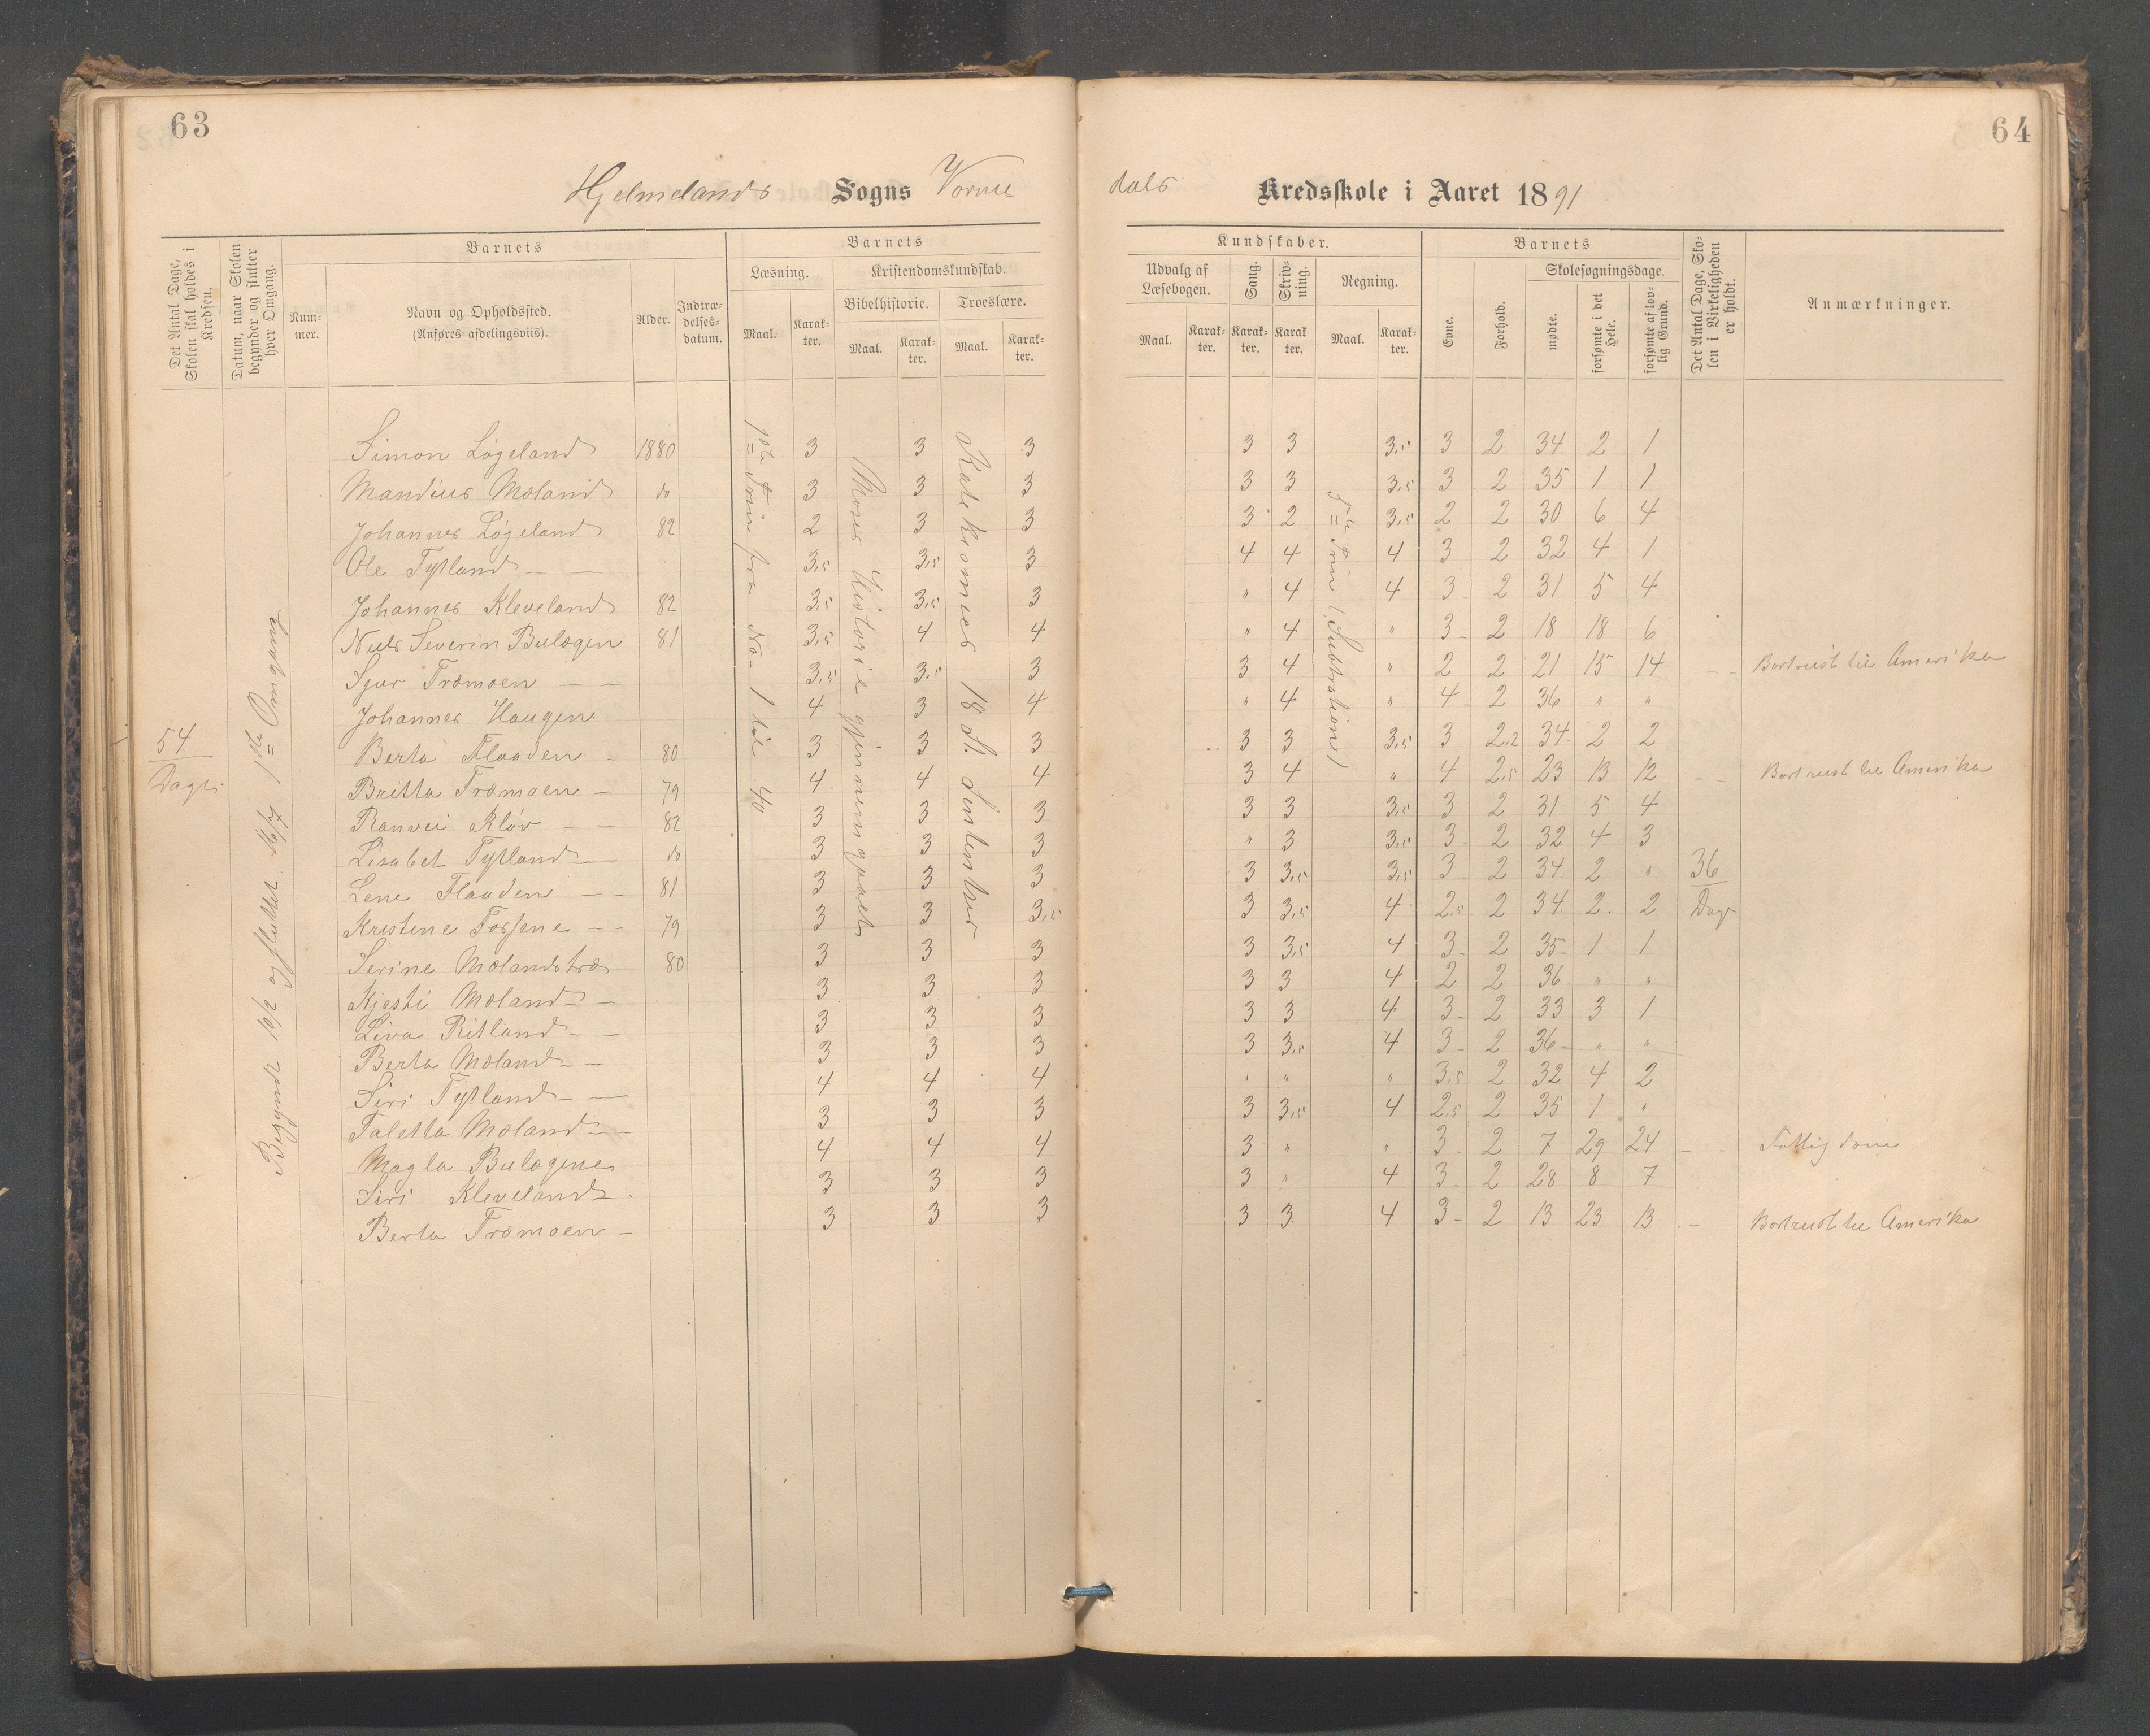 63
64
Hjelmelands Sogns Vorme
dals Kredsskole i Aaret 1891
Det Antal Dage, Skolen skal holdes i Kredsen.
Datum, naar Skolen begynder og slutter hver Omgang.
Nummer.
Barnets
Navn og Opholdssted.
(Anføres afdelingsviis).
Alder.
Indtrædelsesdatum.
Barnets
Læsning.
Maal.
Karakter.
Kristendomskundskab.
Bibelhistorie.
Maal.
Karakter.
Troeslære.
Maal.
Karakter.
Kundskaber.
Udvalg af Læsebogen.
Maal.
Karakter.
Sang.
Karakter.
Skrivning.
Karakter.
Regning.
Maal.
Karakter.
Barnets
Evne.
Forhold.
Skolesøgningsdage.
mødte.
forsømte i det Hele.
forsømte af lovlig Grund.
Det Antal Dage, Skolen i Virkeligheden er holdt.
Anmærkninger.
54
Dage
Begyndt 10/2 og sluttet 16/7 1ste Omgang
1ste Trin fra No 1 til 40
Moses Historie gjennemgaaet
Katekismes 18 S. Sentenser
Trin (Subtraktion)
36
Dage
Simon Løgeland 1880 3 3 3 3 3 3,5 3 2 34 2 1
Mandius Mæland do 3 3 3 3 3 3,5 3 2 35 1 1
Johannes Løgeland 82 2 3 3 3 2 3,5 2 2 30 6 4
Ole Tytland - - 3,5 3,5 3 4 4 4 3 2 32 4 1
Johannes Kleveland 82 3,5 3,5 3 " 4 4 3 2 31 5 4
Niels Severin Bulægen 81 3,5 4 4 " 4 " 3 2 18 18 6
Sjur Træmoen - - 3,5 3,5 3 3 4 " 2 2 21 15 14 - - Bortreist til Amerika
Johannes Haugen 4 3 4 " 4 " 4 2 36 " "
Berta Flaaden - 80 3 3 3 3 3 3,5 3 2,2 34 2 2
Britta Træmoen - 79 4 4 4 3 4 " 4 2,5 23 13 12 - - Bortreist til Amerika
Ranvei Kløv - - 82 3 3 3 3 3 3,5 3 2 31 5 4
Lisabet Tytland - do 3 3 3 " 3 3,5 3 2 32 4 3
Lene Flaaden - - 81 3 3 3 3 3,5 3,5 3 2 34 2 "
Kristine Fossene - - 79 3 3 3,5 3 3,5 4 2,5 2 34 2 2
Serine Mælandstræ 80 3 3 3 3 3,5 4 3 2 35 1 1
Kjesti Mæland - - 3 3 3 3 3 4 2 2 36 " "
Liva Ritland - - 3 3 3 3 3 4 3 2 33 3 1
Berta Mæland - - 3 3 3 3 3,5 4 3 2 36 " "
Siri Tytland - - 4 4 4 " " " 3,5 2 32 4 2
Taletta Mæland - - 3 3 3 3 3,5 4 2,5 2 35 1 "
Magla Bulægene 4 4 4 3 " " 3 2 7 29 24 - - Fattigdom
Siri Kleveland - 3 3 3 3 " 4 3 2 28 8 7
Berta Træmoen - 3 3 3 3 3 4 3 2 13 23 13 - Bortreist til Amerika